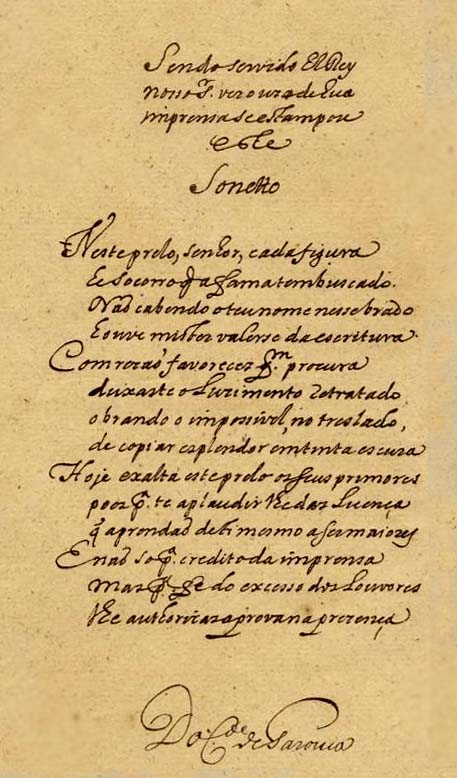 Sendo servido El Rey
nosso sr. ver o uzo de sua
imprensa se estampou
este
Sonetto
Neste prelo, senhor, cada figura
he socorro q̃ a fama tem buscado.
Naõ cabendo o teu nome nesse brado
houve mister valerse da escritura.
Com rezaõ favorecer qm. procura
deixarte o Luzimento retratado,
obrando o impossivel, no treslado,
de copiar esplendor em tinta escura
Hoje exalta este prelo os seus primores
pois pa. te aplaudir lhe das Licença
q̃ aprendaõ de ti mesmo a ser maiores
E naõ so pa. credito da imprensa
mas pa. do excesso dos Louvores
lhe authorizas a prova na prezença
Do Cde. de